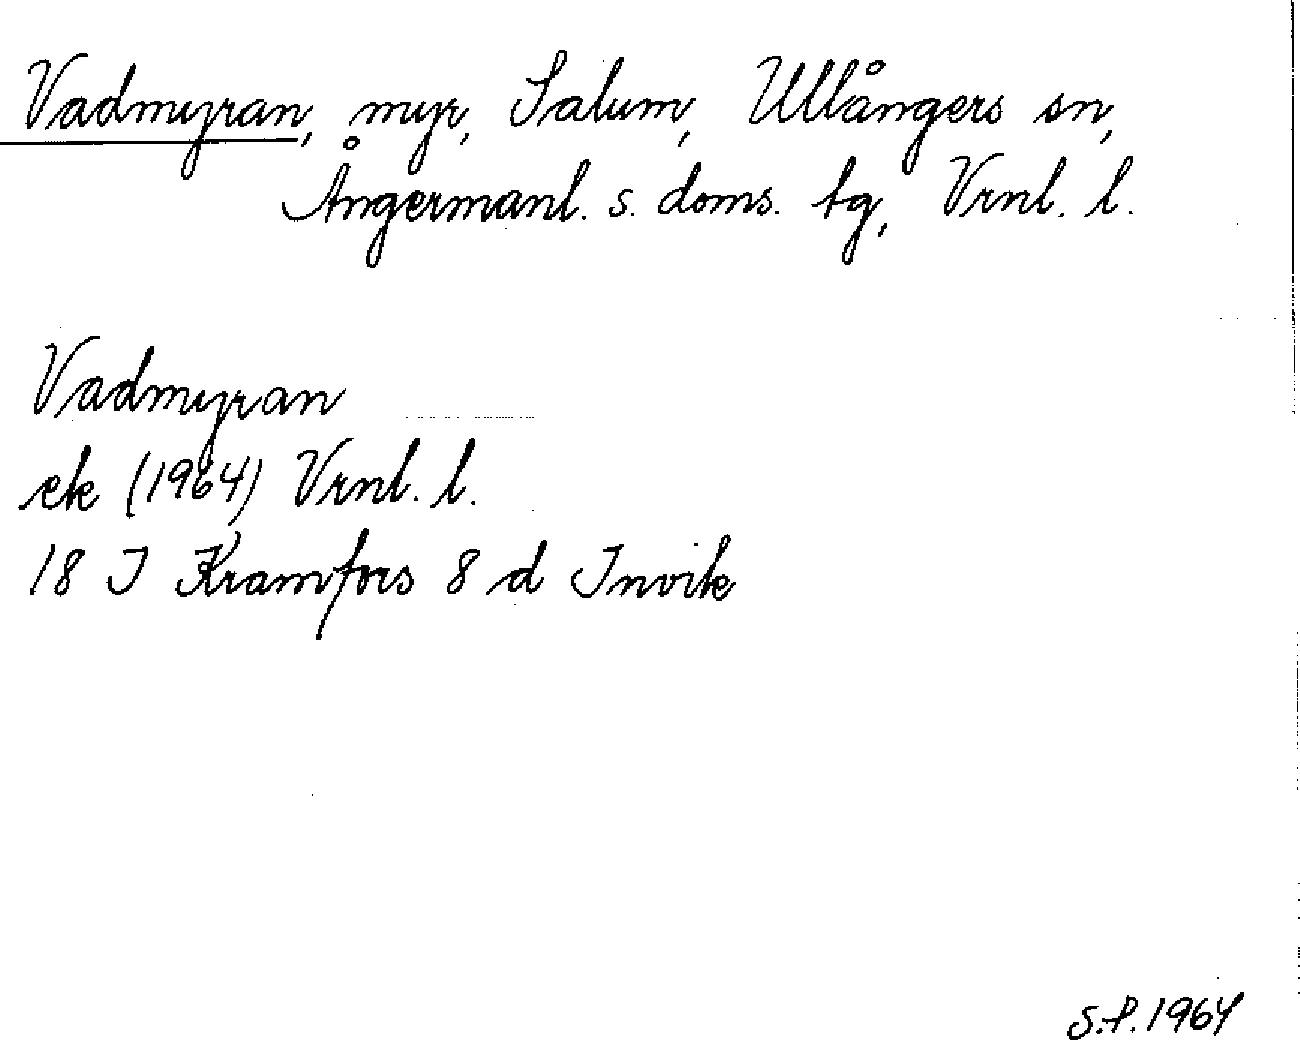 Vadmyran, myr, Salum, Ullångers sn,
Ångermanl. s. doms. tg, Vrnl. l.
Vadmyran
ek (1964) Vrnl. l.
18 I Kramfors 8 d Invik
S.P. 1964